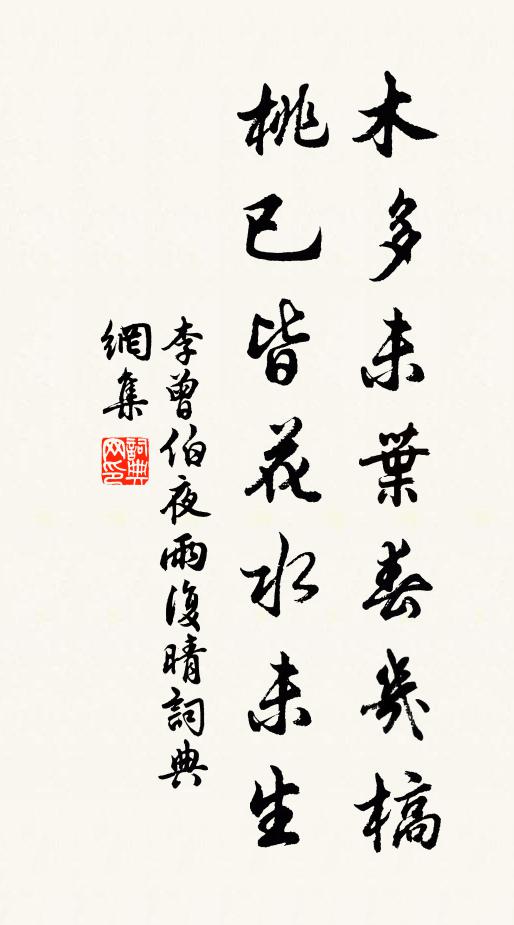 木多未葉春幾槁
桃已皆花水未生
李曾伯夜雨復晴詞典
網集
詞典网印